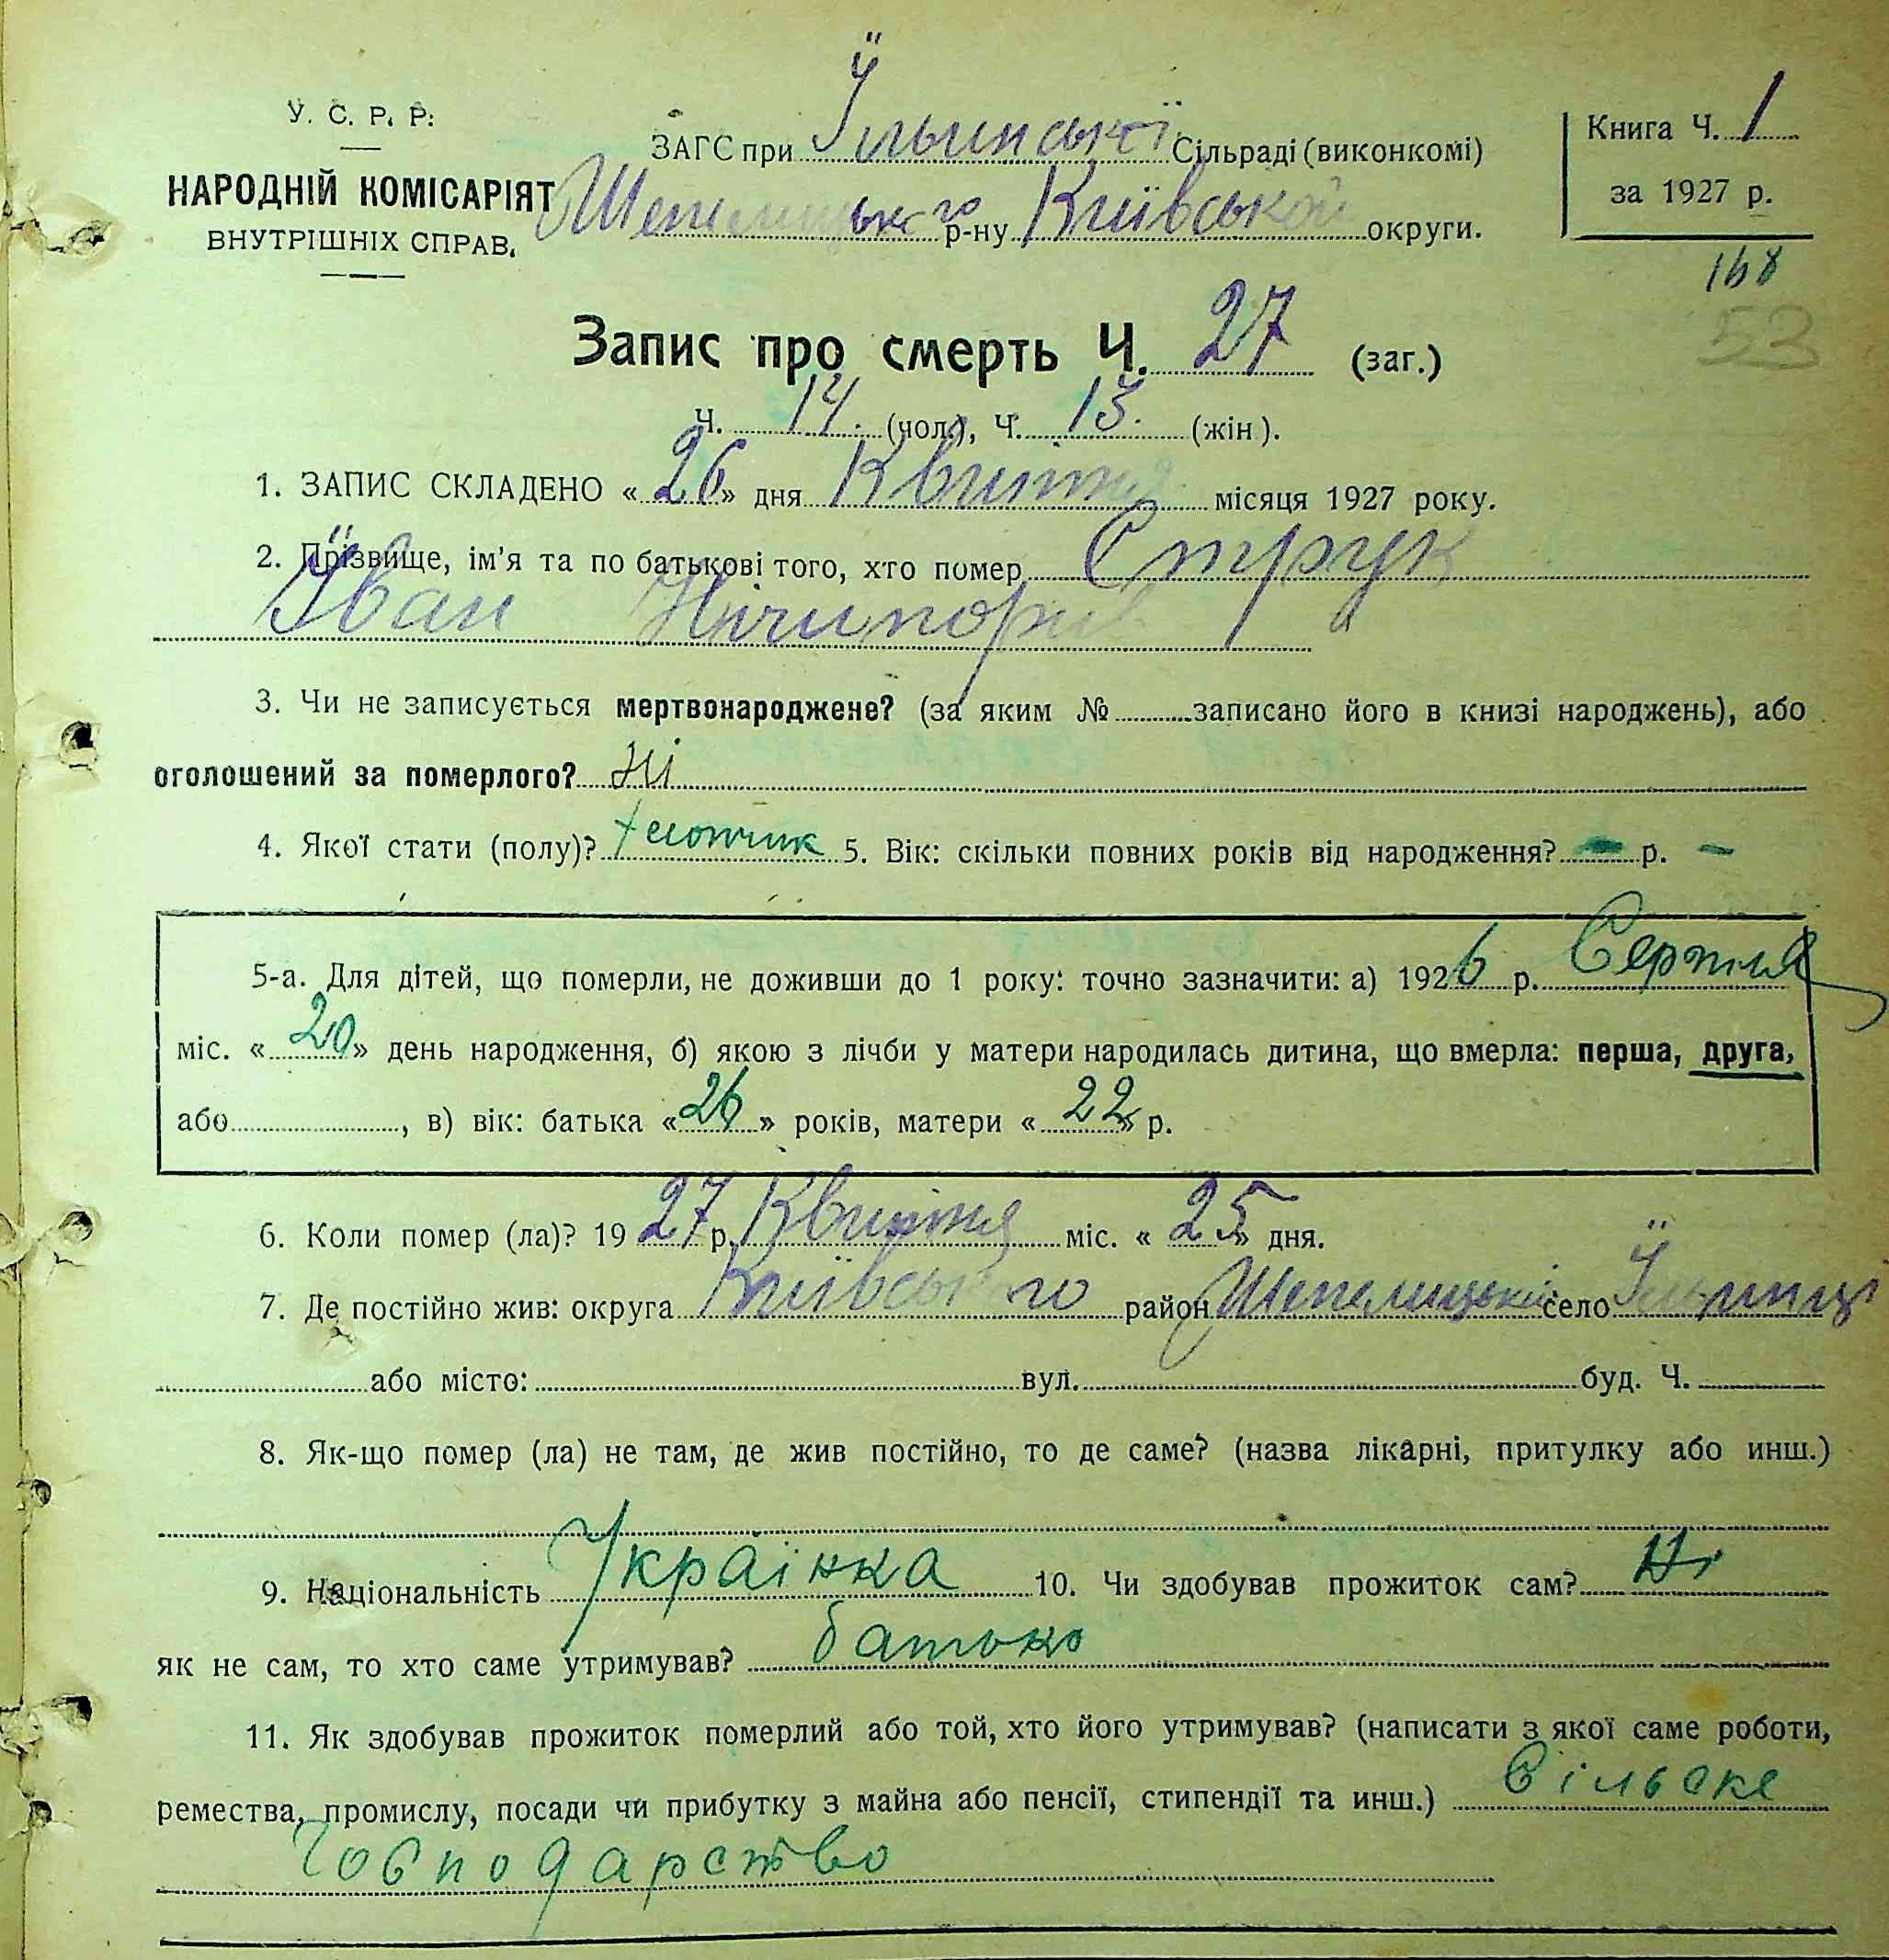 У. С. Р. Р.
НАРОДНІЙ КОМІСАРІЯТ
ВНУТРІШНІХ СПРАВ.
ЗАГС при Їльинські Сільраді (виконкомі)
Шепелицького р-ну Київської округи.
Книга Ч. 1
за 1927 р.
168
53
Запис про смерть Ч. 27 (заг.)
Ч. 14. (чол.), Ч. 13. (жін.).
1. ЗАПИС СКЛАДЕНО «26» дня Квитня місяця 1927 року.
2. Прізвище, ім'я та по батькові того, хто помер Струк
Їван Нічипорів
3. Чи не записується мертвонароджене? (за яким № записано його в книзі народжень), або
оголошений за померлого? Ні
4. Якої стати (полу)? Хлопчик 5. Вік: скільки повних років від народження? - р. -
5-а. Для дітей, що померли, не доживши до 1 року: точно зазначити: а) 1926 р. Серпня
міс. «20» день народження, б) якою з лічби у матери народилась дитина, що вмерла: перша, друга,
або , в) вік: батька «26» років, матери «22» р.
6. Коли помер (ла)? 1927 р. Квитня міс. «25» дня.
7. Де постійно жив: округа Київського район Шепелицький село Їльинці
або місто: вул. буд. Ч.
8. Як-що помер (ла) не там, де жив постійно, то де саме? (назва лікарні, притулку або инш.)
9. Національність Українка 10. Чи здобував прожиток сам? Ні
як не сам, то хто саме утримував? батько
11. Як здобував прожиток померлий або той, хто його утримував? (написати з якої саме роботи,
ремества, промислу, посади чи прибутку з майна або пенсії, стипендії та инш.) Сільске
Господарство